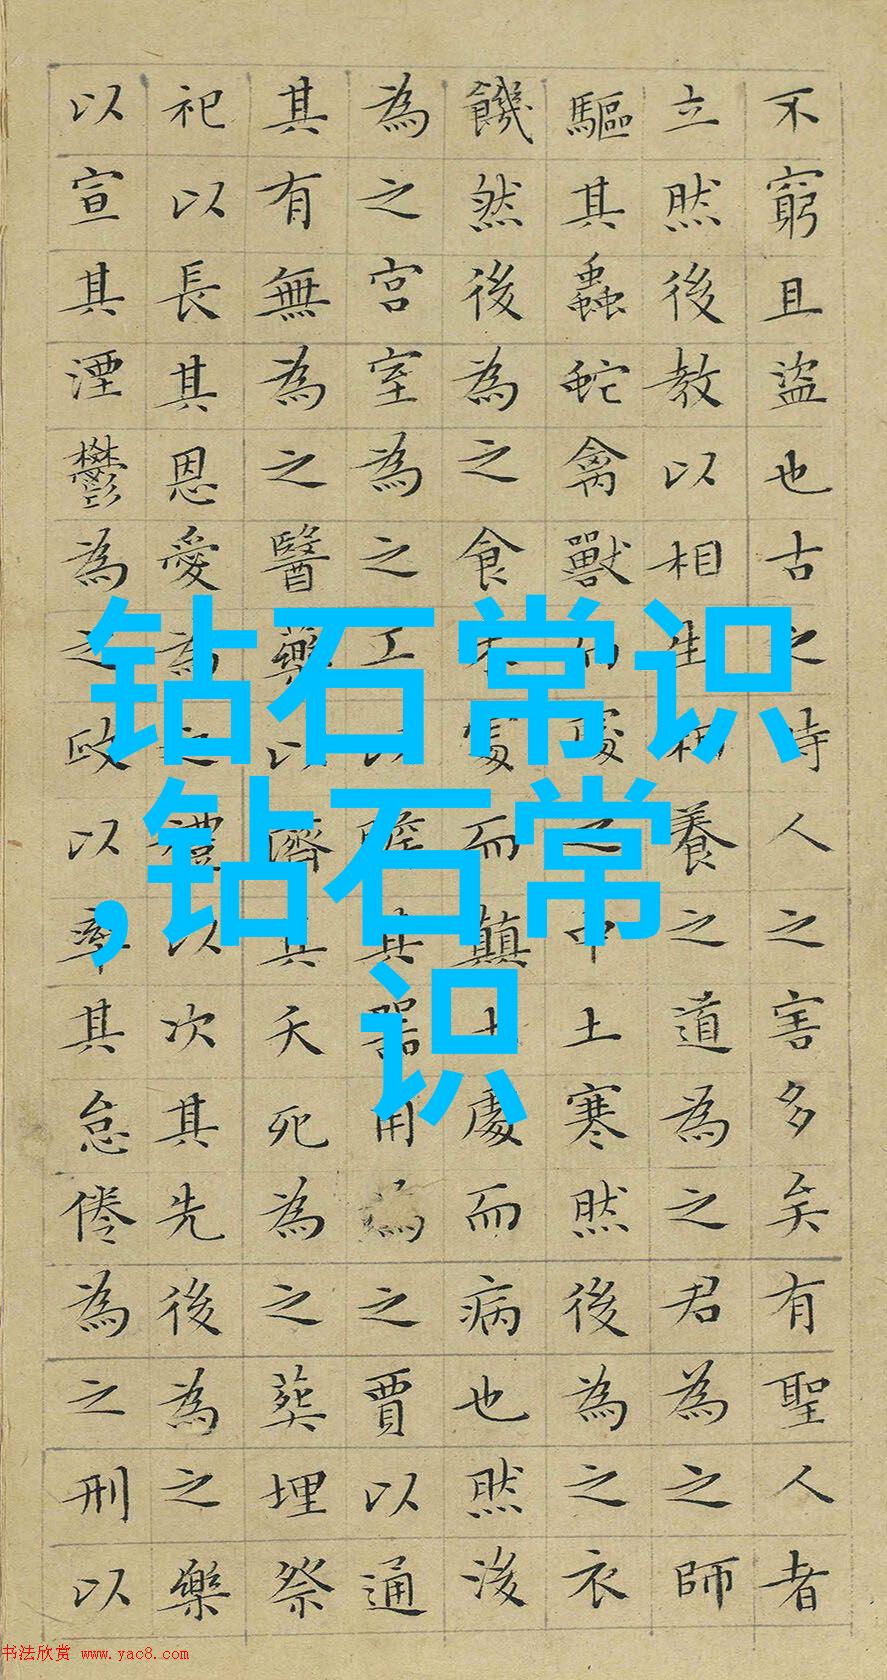 不窮且盜也古之時人之害多矣有聖人者
立然後教以相生相養之道為之君為之師
驅其蟲蛇禽獸而處之中土寒然後為之衣
饑然後為之食木處而顛土處而病也然後
為之宮室為之工以贍其器用為之賈以通
其有無為之醫藥以濟其夭死為之葬埋祭
祀以長其恩愛為之禮以次其先後為之樂
以宣其湮鬱為之政以率其怠倦為之刑以
钻石常识
,钻石常
识
书法欣赏 www.yac8.com